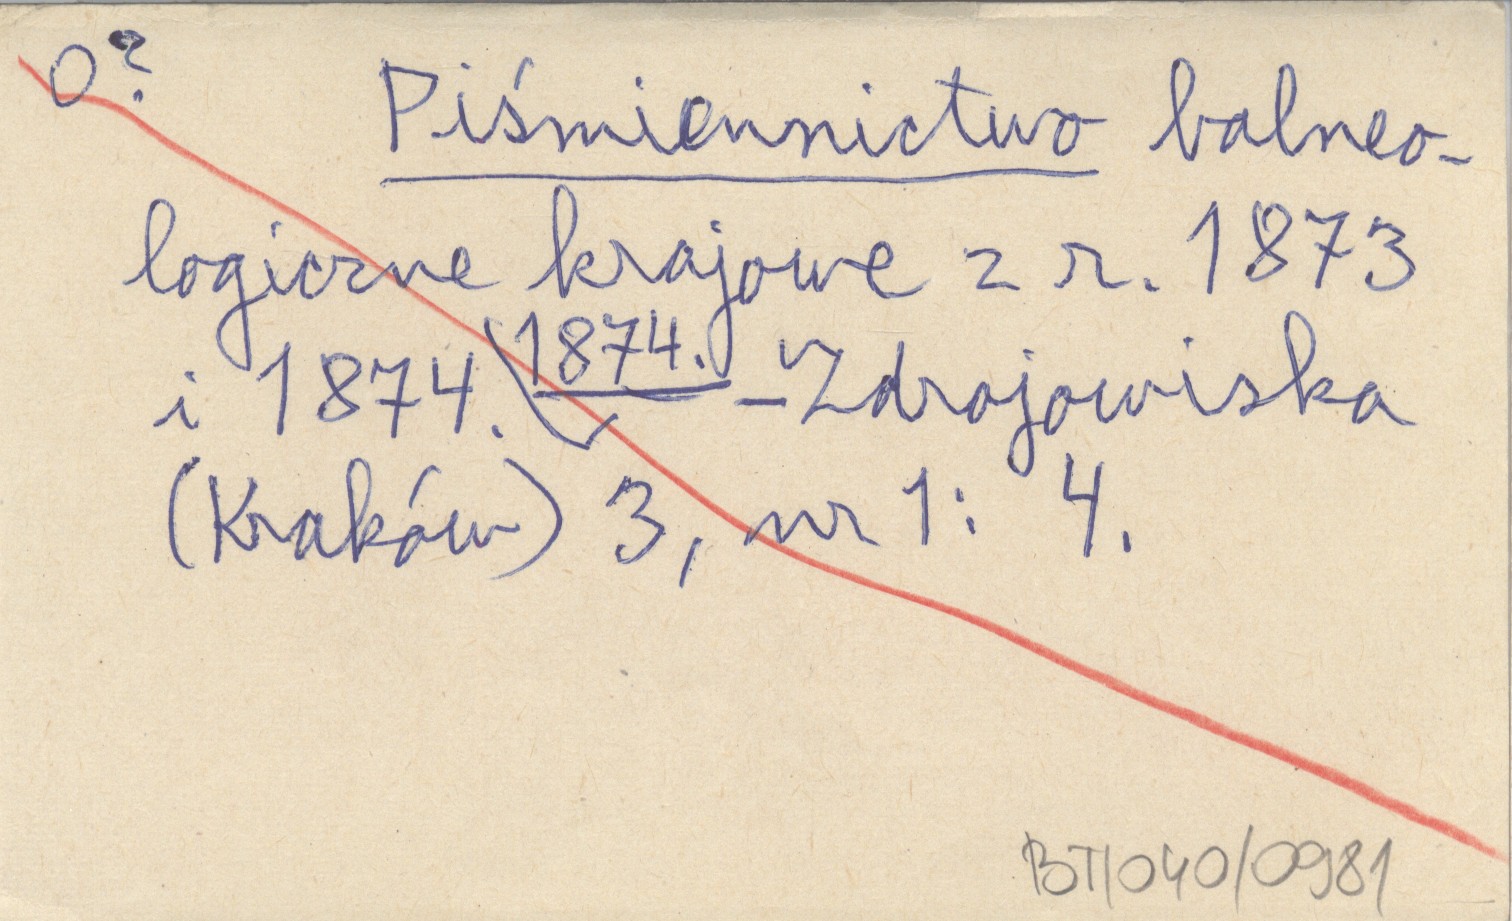 O?
Piśmiennictwo balneo-
logiczne krajowe z r. 1873
i 1874. 1874. - Zdrojowiska
(Kraków) 3, nr 1: 4.
BT/040/0981